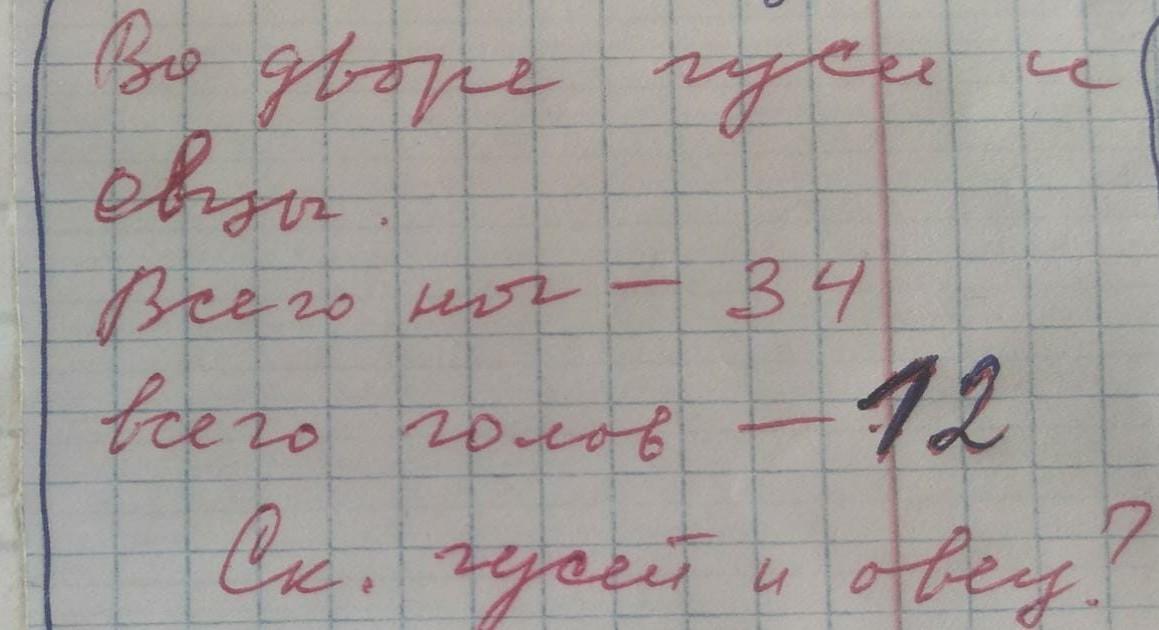 Во дворе гуси и
овцы.
Всего ног – 34
всего голов – 12
Ск. гусей и овец?